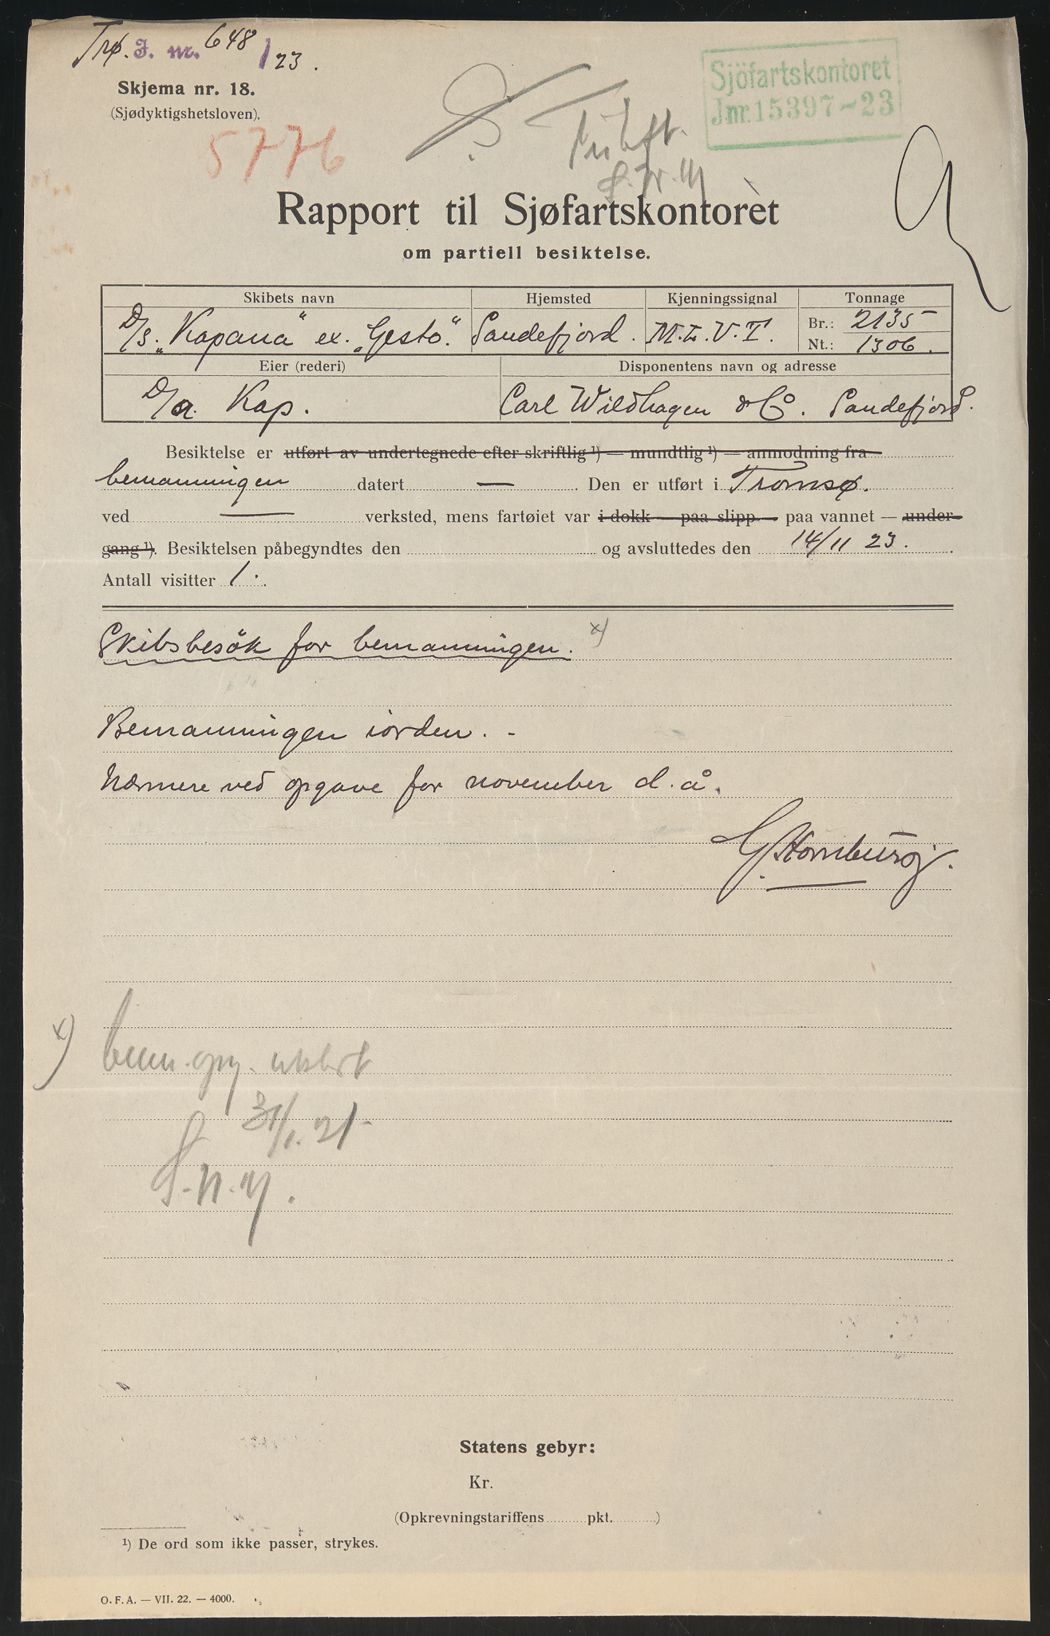 Trø. J. nr. 648/23.
Skjema nr. 18.
(Sjødyktigshetsloven).
5776
Sjöfartskontoret
Jnr. 15397-23
Rapport til Sjøfartskontoret
om partiell besiktelse.
Skibets navn Hjemsted Kjenningssignal Tonnage
D/S. „Kapana" ex. „Gesto". Sandefjord. M.L.V.T. Br.: 2135
Nt.: 1306.
Eier (rederi) Disponentens navn og adresse
D/A. Kap. Carl Wildhagen & Co. Sandefjord.
Besiktelse er utført av undertegnede efter skriftlig ¹) — mundtlig ¹) — anmodning fra
bemanningen datert — Den er utført i Tromsø.
ved — verksted, mens fartøiet var i dokk — paa slipp — paa vannet — under-
gang ¹). Besiktelsen påbegyndtes den og avsluttedes den 14/11 23.
Antall visitter 1.
Skibsbesök for bemanningen. x)
Bemanningen iorden. -
Nærmere ved opgave for november d. å.
G. Hornburg.
x) bem. opg.
31/1. 21-
Statens gebyr:
Kr.
(Opkrevningstariffens pkt. )
¹) De ord som ikke passer, strykes.
O. F. A. — VII. 22. — 4000.